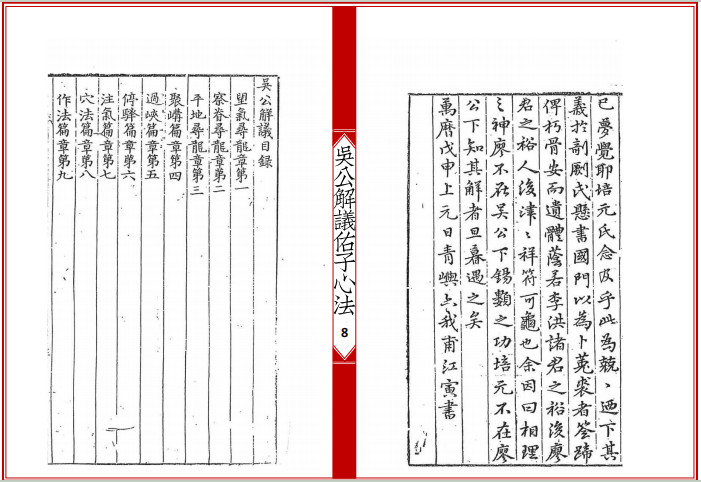 已夢覺耶培元氏念及乎此為兢、迺下其
義於剞劂氏懸書國門以為卜菟裘者筌蹄
俾朽骨安而遺體蔭若李洪諸君之裕後廖
君之裕人後津、祥符可龜也余因曰相理
之神廖不在吴公下錫類之功培元不在廖
公下知其解者旦暮遇之矣
萬曆戊申上元日青嶼山我甫江寅書
吳公解議佑子心法
8
吴公解議目錄
望氣尋龍章第一
察脊尋龍章第二
平地尋龍章第三
聚嶹篇章第四
過峽篇章第五
停驛篇章第六
注氣篇章第七
穴法篇章第八
作法篇章第九